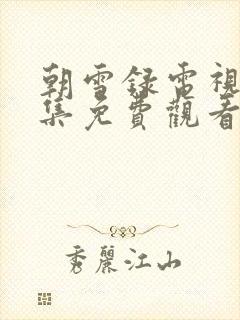 朝雪録電視
集免費觀看
秀麗江山